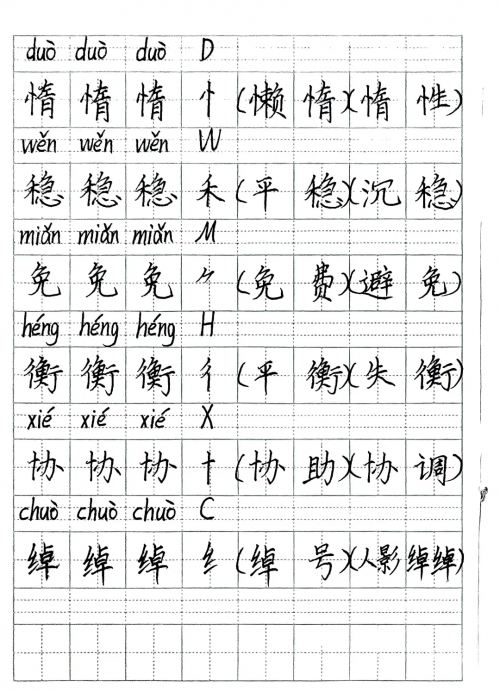 duò duò duò D
惰 惰 惰 忄 (懒 惰)(惰 性)
wěn wěn wěn W
稳 稳 稳 禾 (平 稳)(沉 稳)
miǎn miǎn miǎn M
免 免 免 ⺈ (免 费)(避 免)
héng héng héng H
衡 衡 衡 彳 (平 衡)(失 衡)
xié xié xié X
协 协 协 十 (协 助)(协 调)
chuò chuò chuò C
绰 绰 绰 纟 (绰 号)(人影 绰绰)